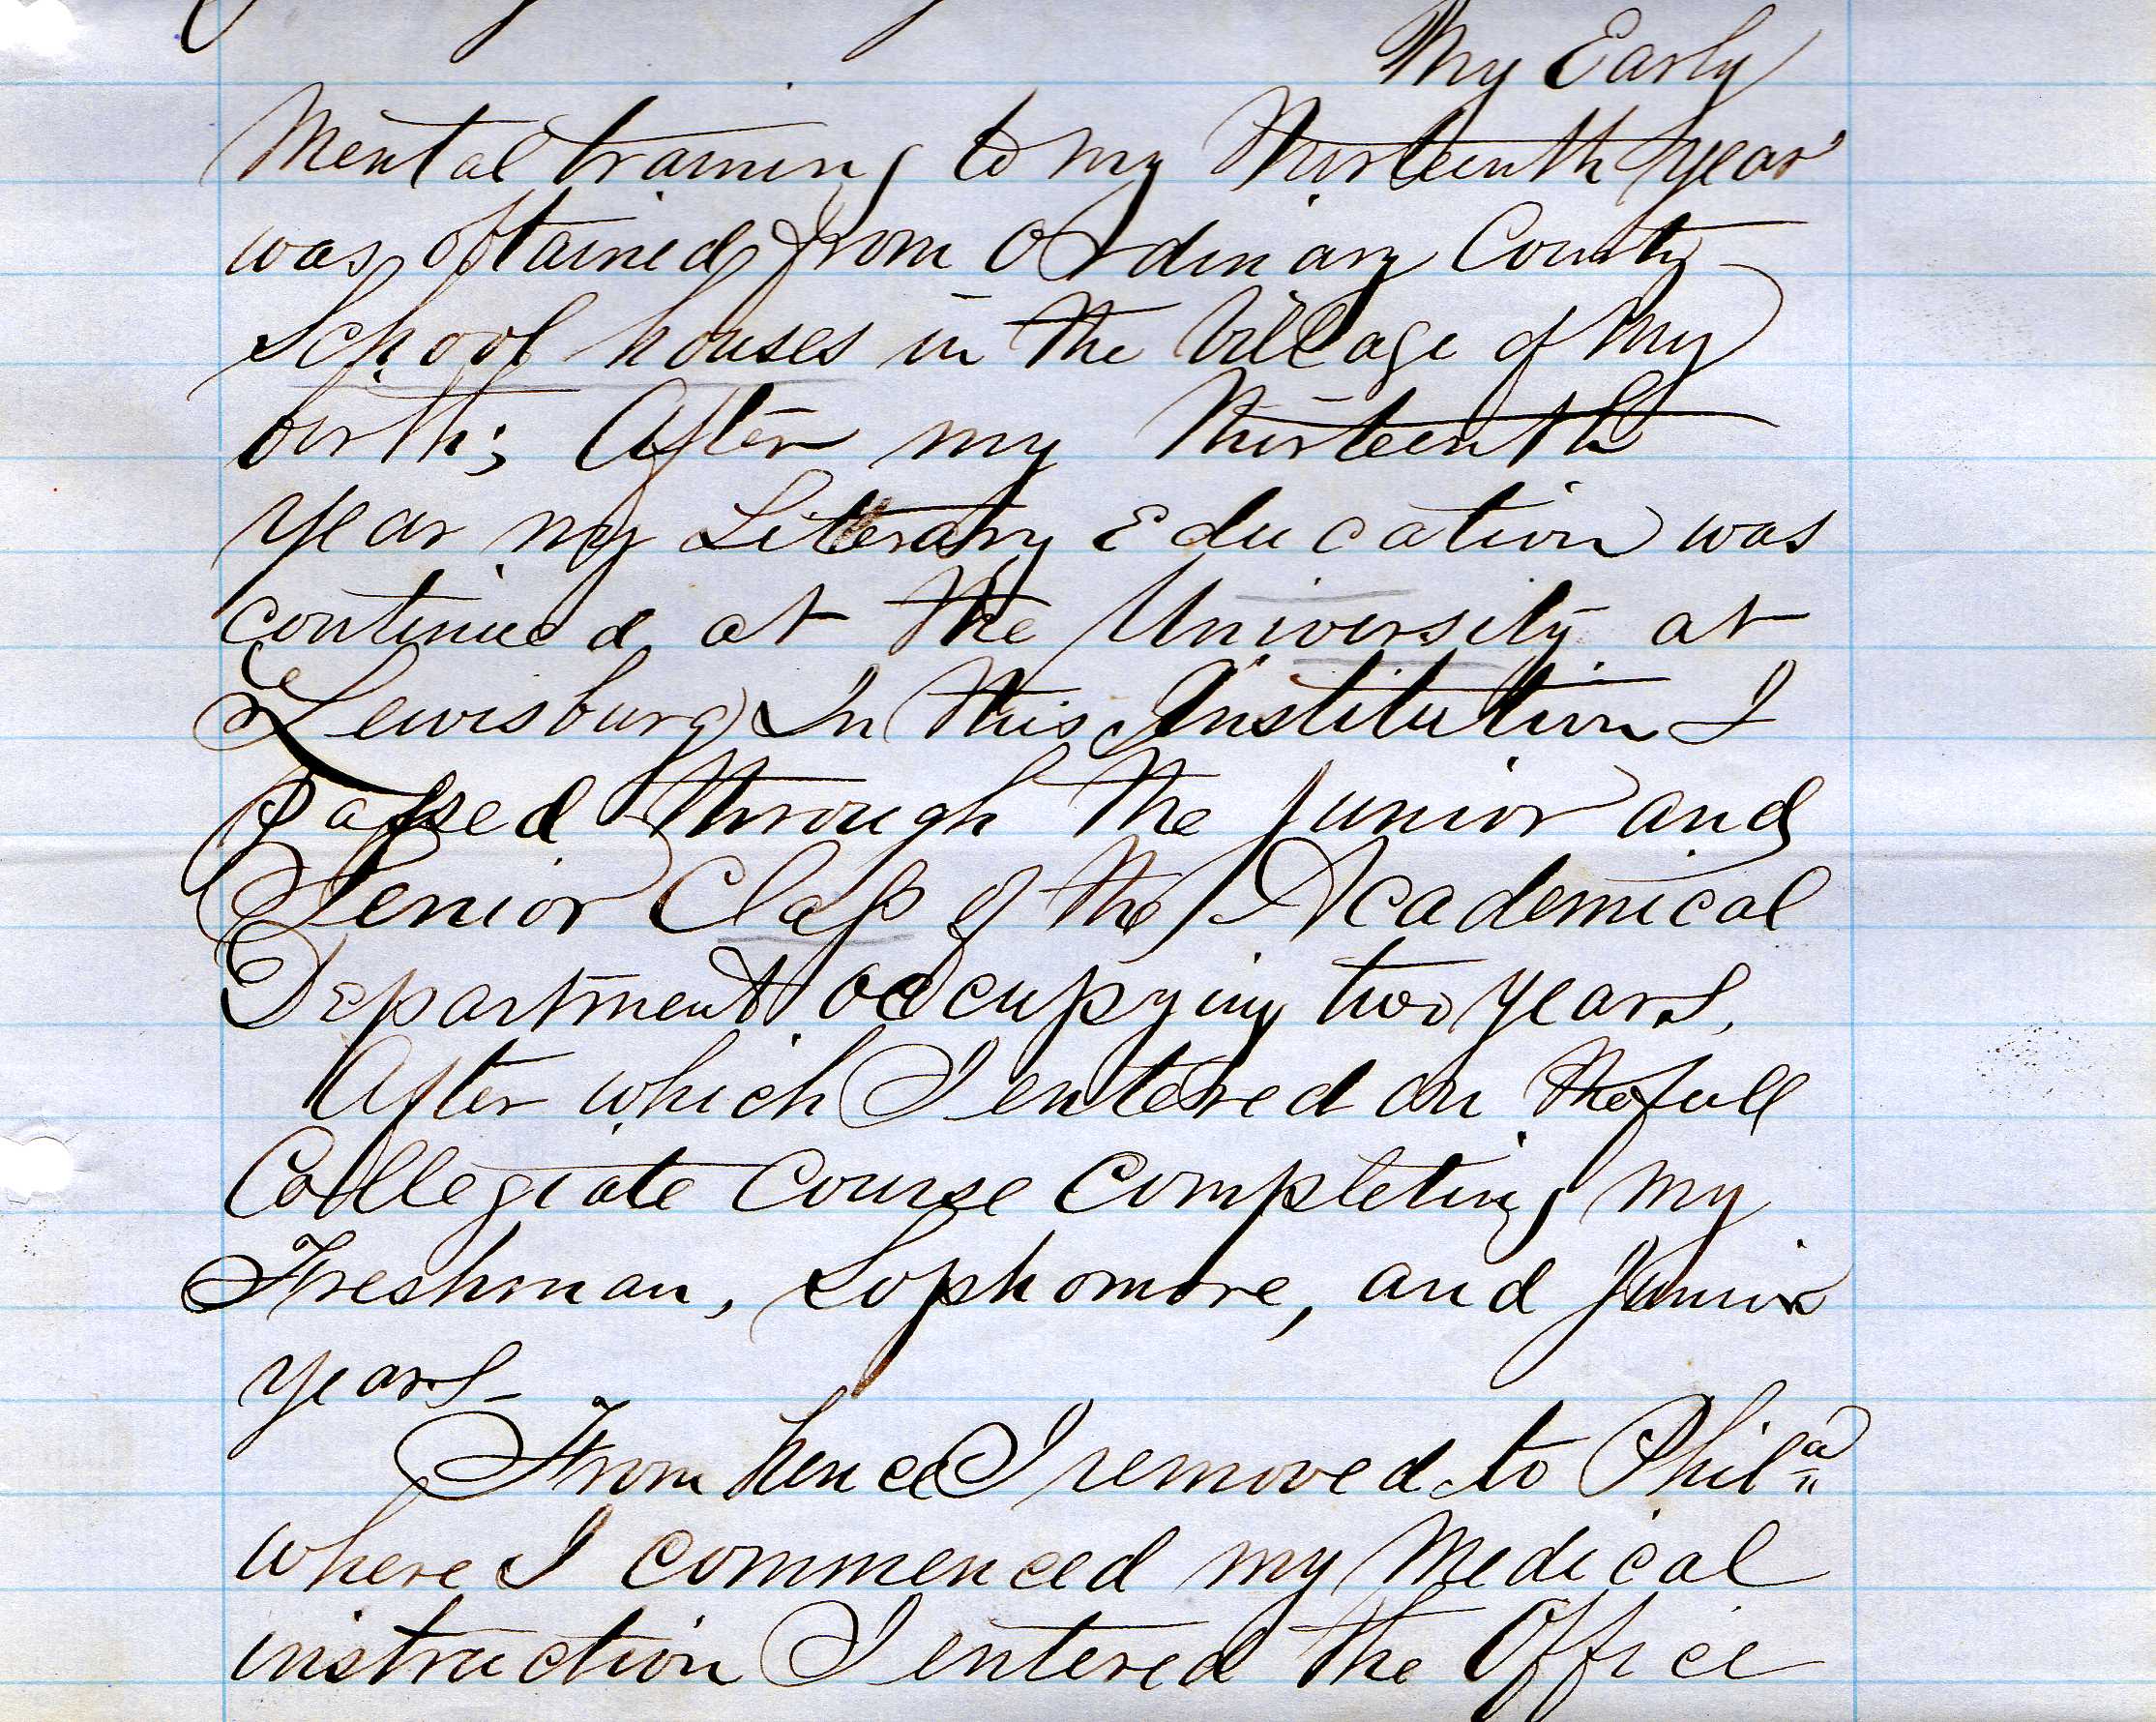 My Early
Mental training to my thirteenth year
was obtained from Ordinary County
School houses in the Village of my
birth; After my thirteenth
year my Literary Education was
continued at the University at
Lewisburg In this Institution I
passed through the junior and
Senior Class of the Academical
Department occupying two years,
After which I entered on the full
Collegiate Course Completing my
Freshman, Sophomore, and Junior
years-
From hence I removed to Phila
where I commenced my Medical
instruction I entered the Office